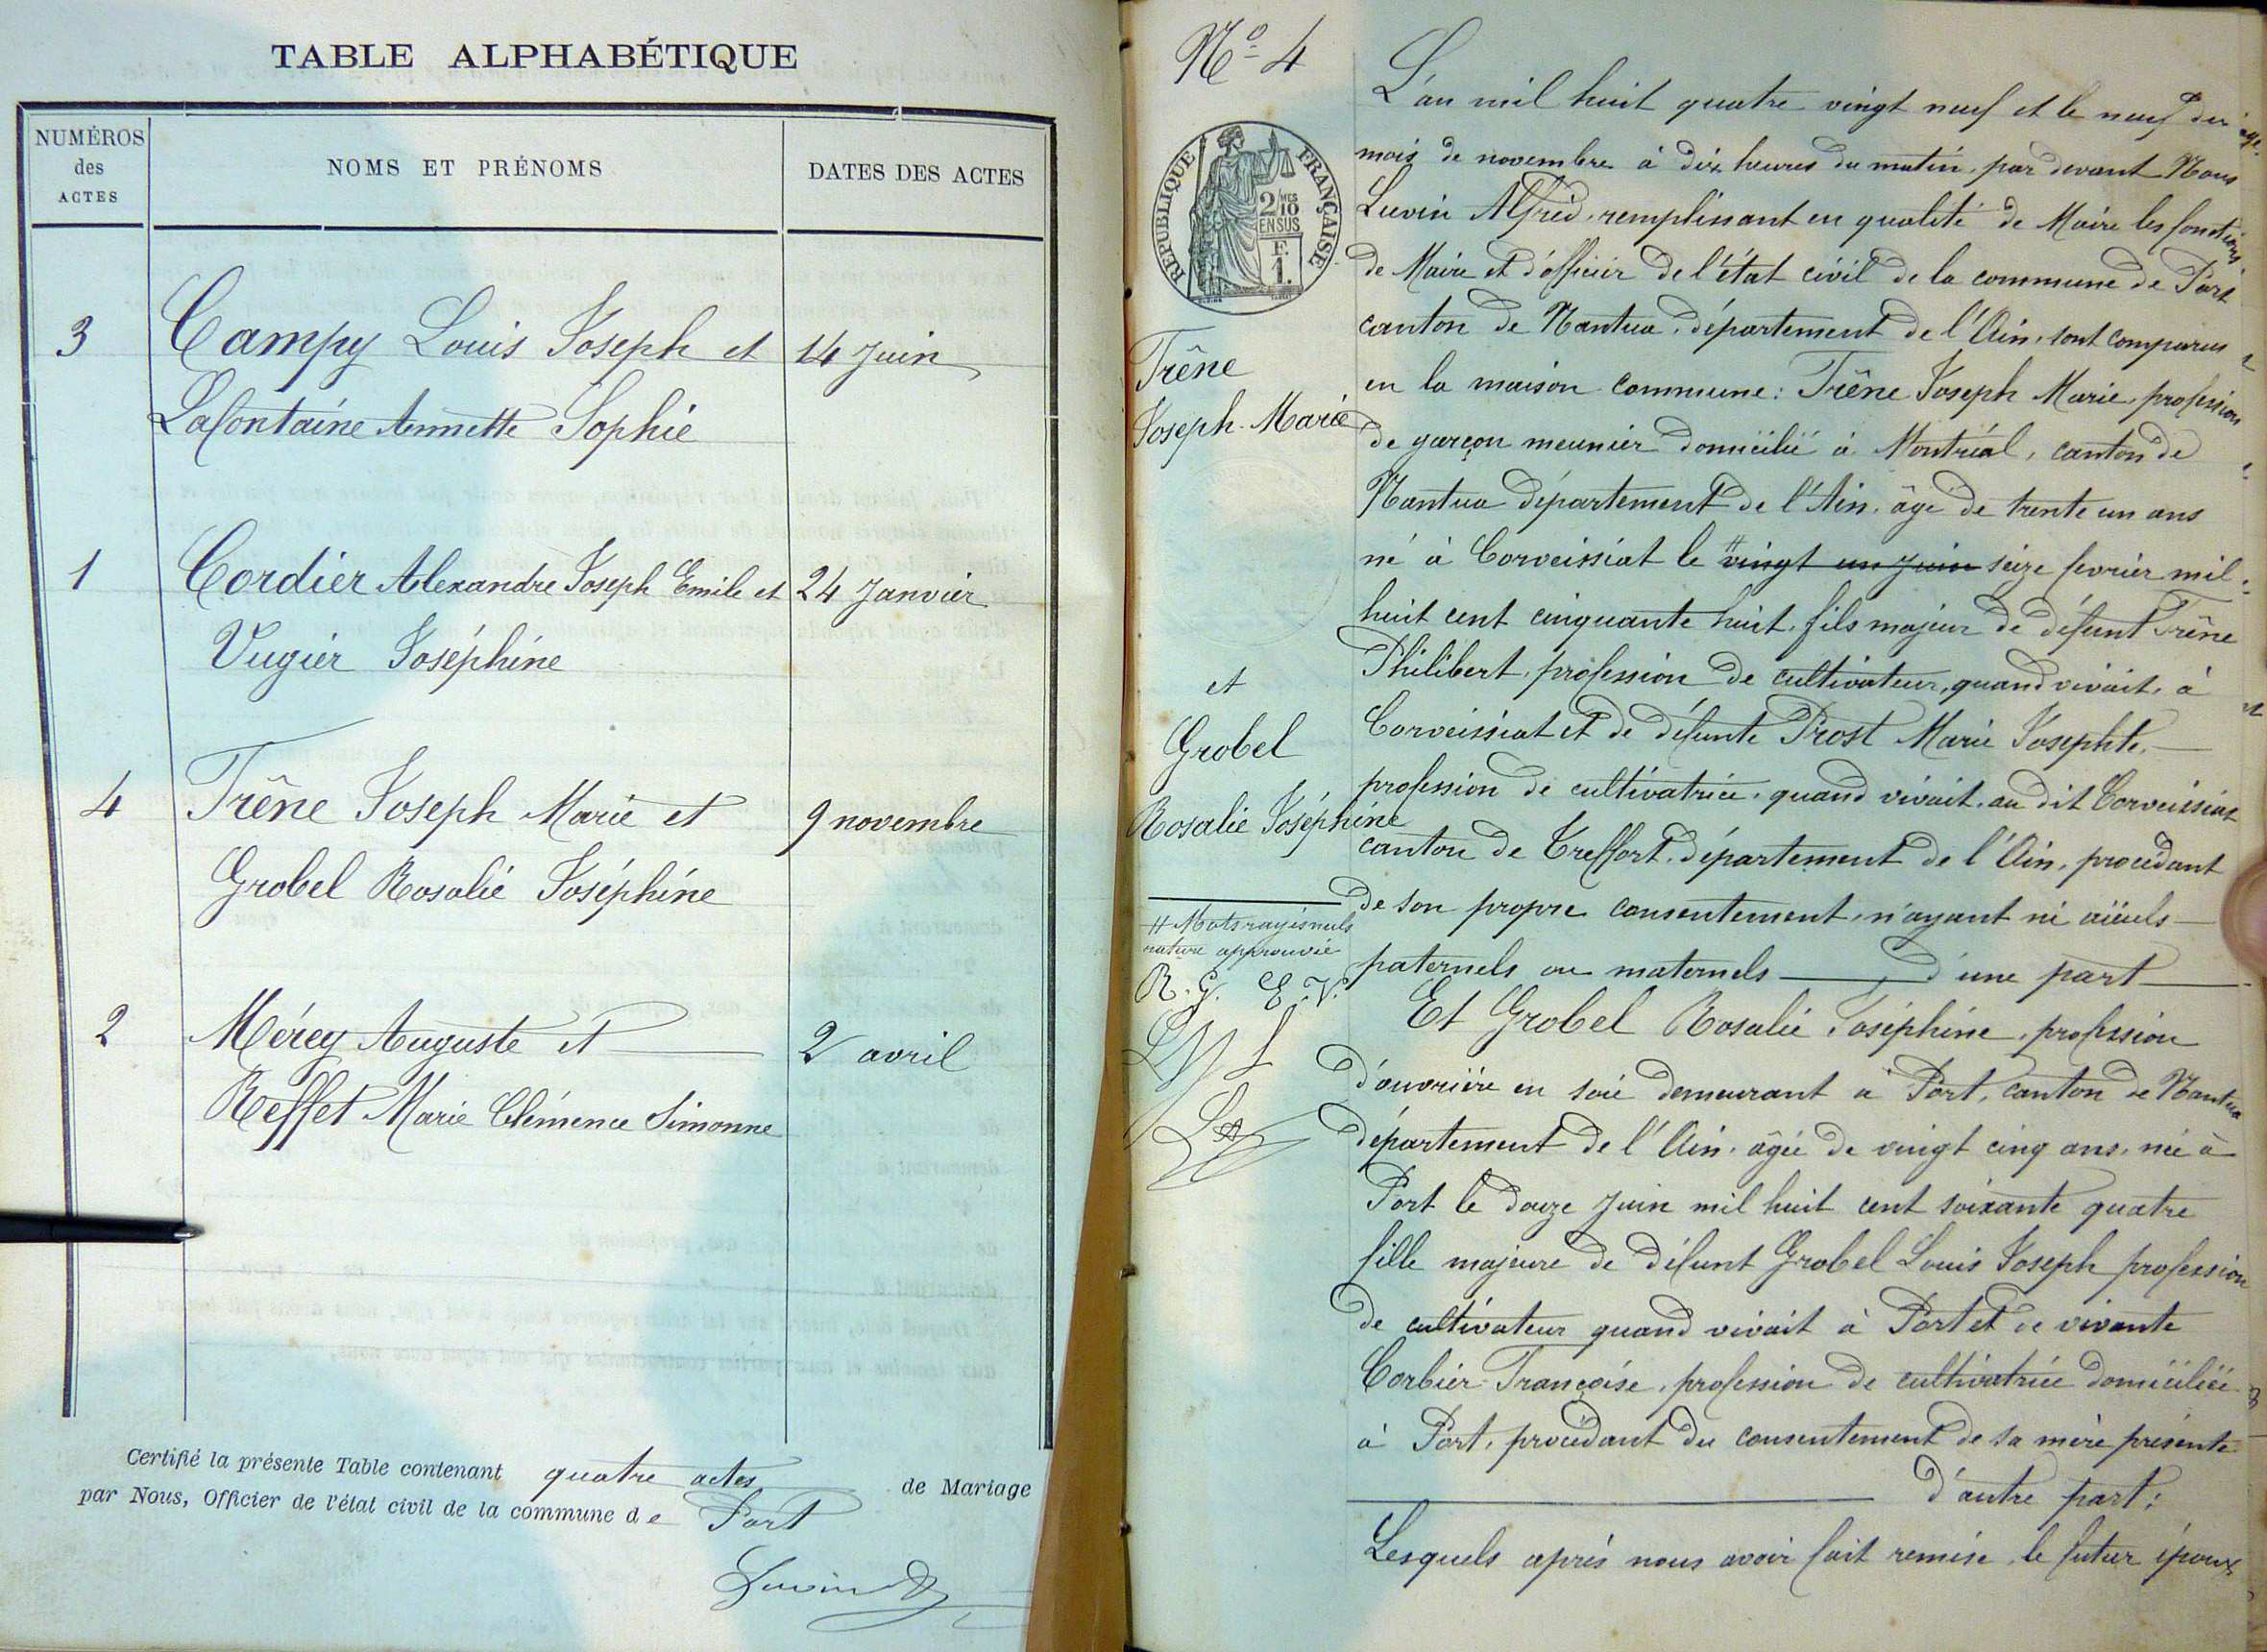 TABLE ALPHABÉTIQUE
NUMÉROS des ACTES
NOMS ET PRÉNOMS
DATES DES ACTES
3 Campy Louis Joseph et 14 Juin
Lafontaine Annette Sophie
1 Cordier Alexandre Joseph Emile et 24 Janvier
Vugier Joséphine
4 Trêne Joseph Marie et 9 novembre
Grobel Rosalie Joséphine
2 Mérey Auguste et 2 avril
Reffet Marie Clémence Simonne
Certifié la présente Table contenant quatre actes de Mariage
par Nous, Officier de l'état civil de la commune de Port
Nº 4
RÉPUBLIQUE FRANÇAISE
2/10 MES
EN SUS
F.
1.
Trêne
Joseph-Marie
et
Grobel
Rosalie Joséphine
# Mots rayés nuls
rature approuvée
R. G. E. V.
L'an mil huit quatre vingt neuf et le neuf du
mois de novembre à dix heures du matin, par devant Nous
Luvin Alfred, remplissant en qualité de Maire les fonctions
de Maire et d'officier de l'état civil de la commune de Port
canton de Nantua, département de l'Ain, sont comparus
en la maison commune: Trêne Joseph Marie, profession
de garçon meunier domicilié à Montréal, canton de
Nantua département de l'Ain, âgé de trente un ans
né à Corveissiat le # vingt un juin seize fevrier mil
huit cent cinquante huit, fils majeur de défunt Trêne
Philibert, profession de cultivateur, quand vivait, à
Corveissiat et de défunte Prost Marie Josephte,
profession de cultivatrice, quand vivait, au dit Corveissiat
canton de Treffort, département de l'Ain, procédant
de son propre consentement, n'ayant ni aïeuls
paternels ou maternels d'une part
Et Grobel Rosalie Joséphine, profession
d'ouvrière en soie demeurant à Port, canton de Nantua
département de l'Ain, âgée de vingt cinq ans, née à
Port le douze Juin mil huit cent soixante quatre
fille majeure de défunt Grobel Louis Joseph profession
de cultivateur quand vivait à Port et de vivante
Corbier Françoise, profession de cultivatrice domiciliée
à Port, procédant du consentement de sa mère présente
d'autre part;
Lesquels après nous avoir fait remise, le futur époux